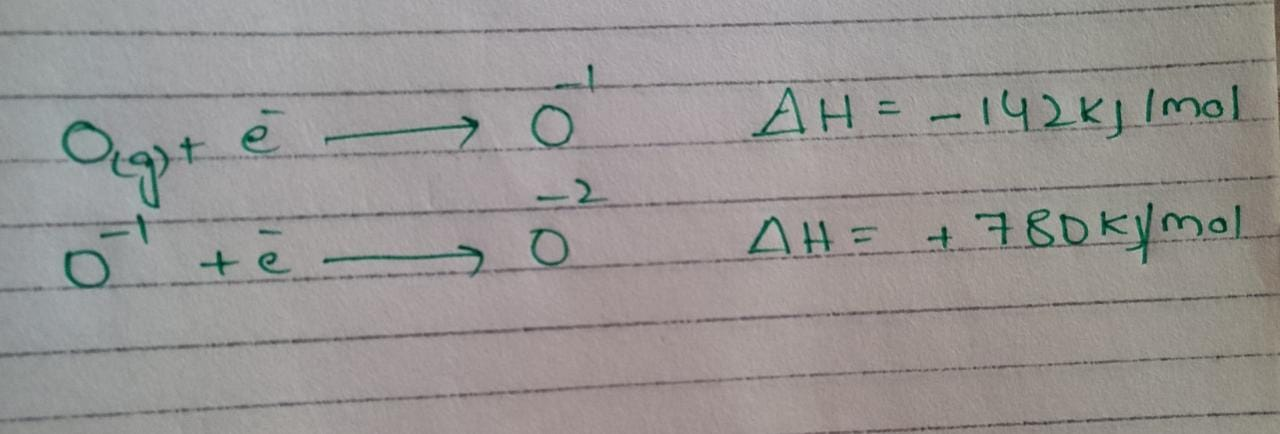 O(g) + e⁻ ⟶ O⁻¹ ΔH = -142 kJ/mol
O⁻¹ + e⁻ ⟶ O⁻² ΔH = +780 kJ/mol